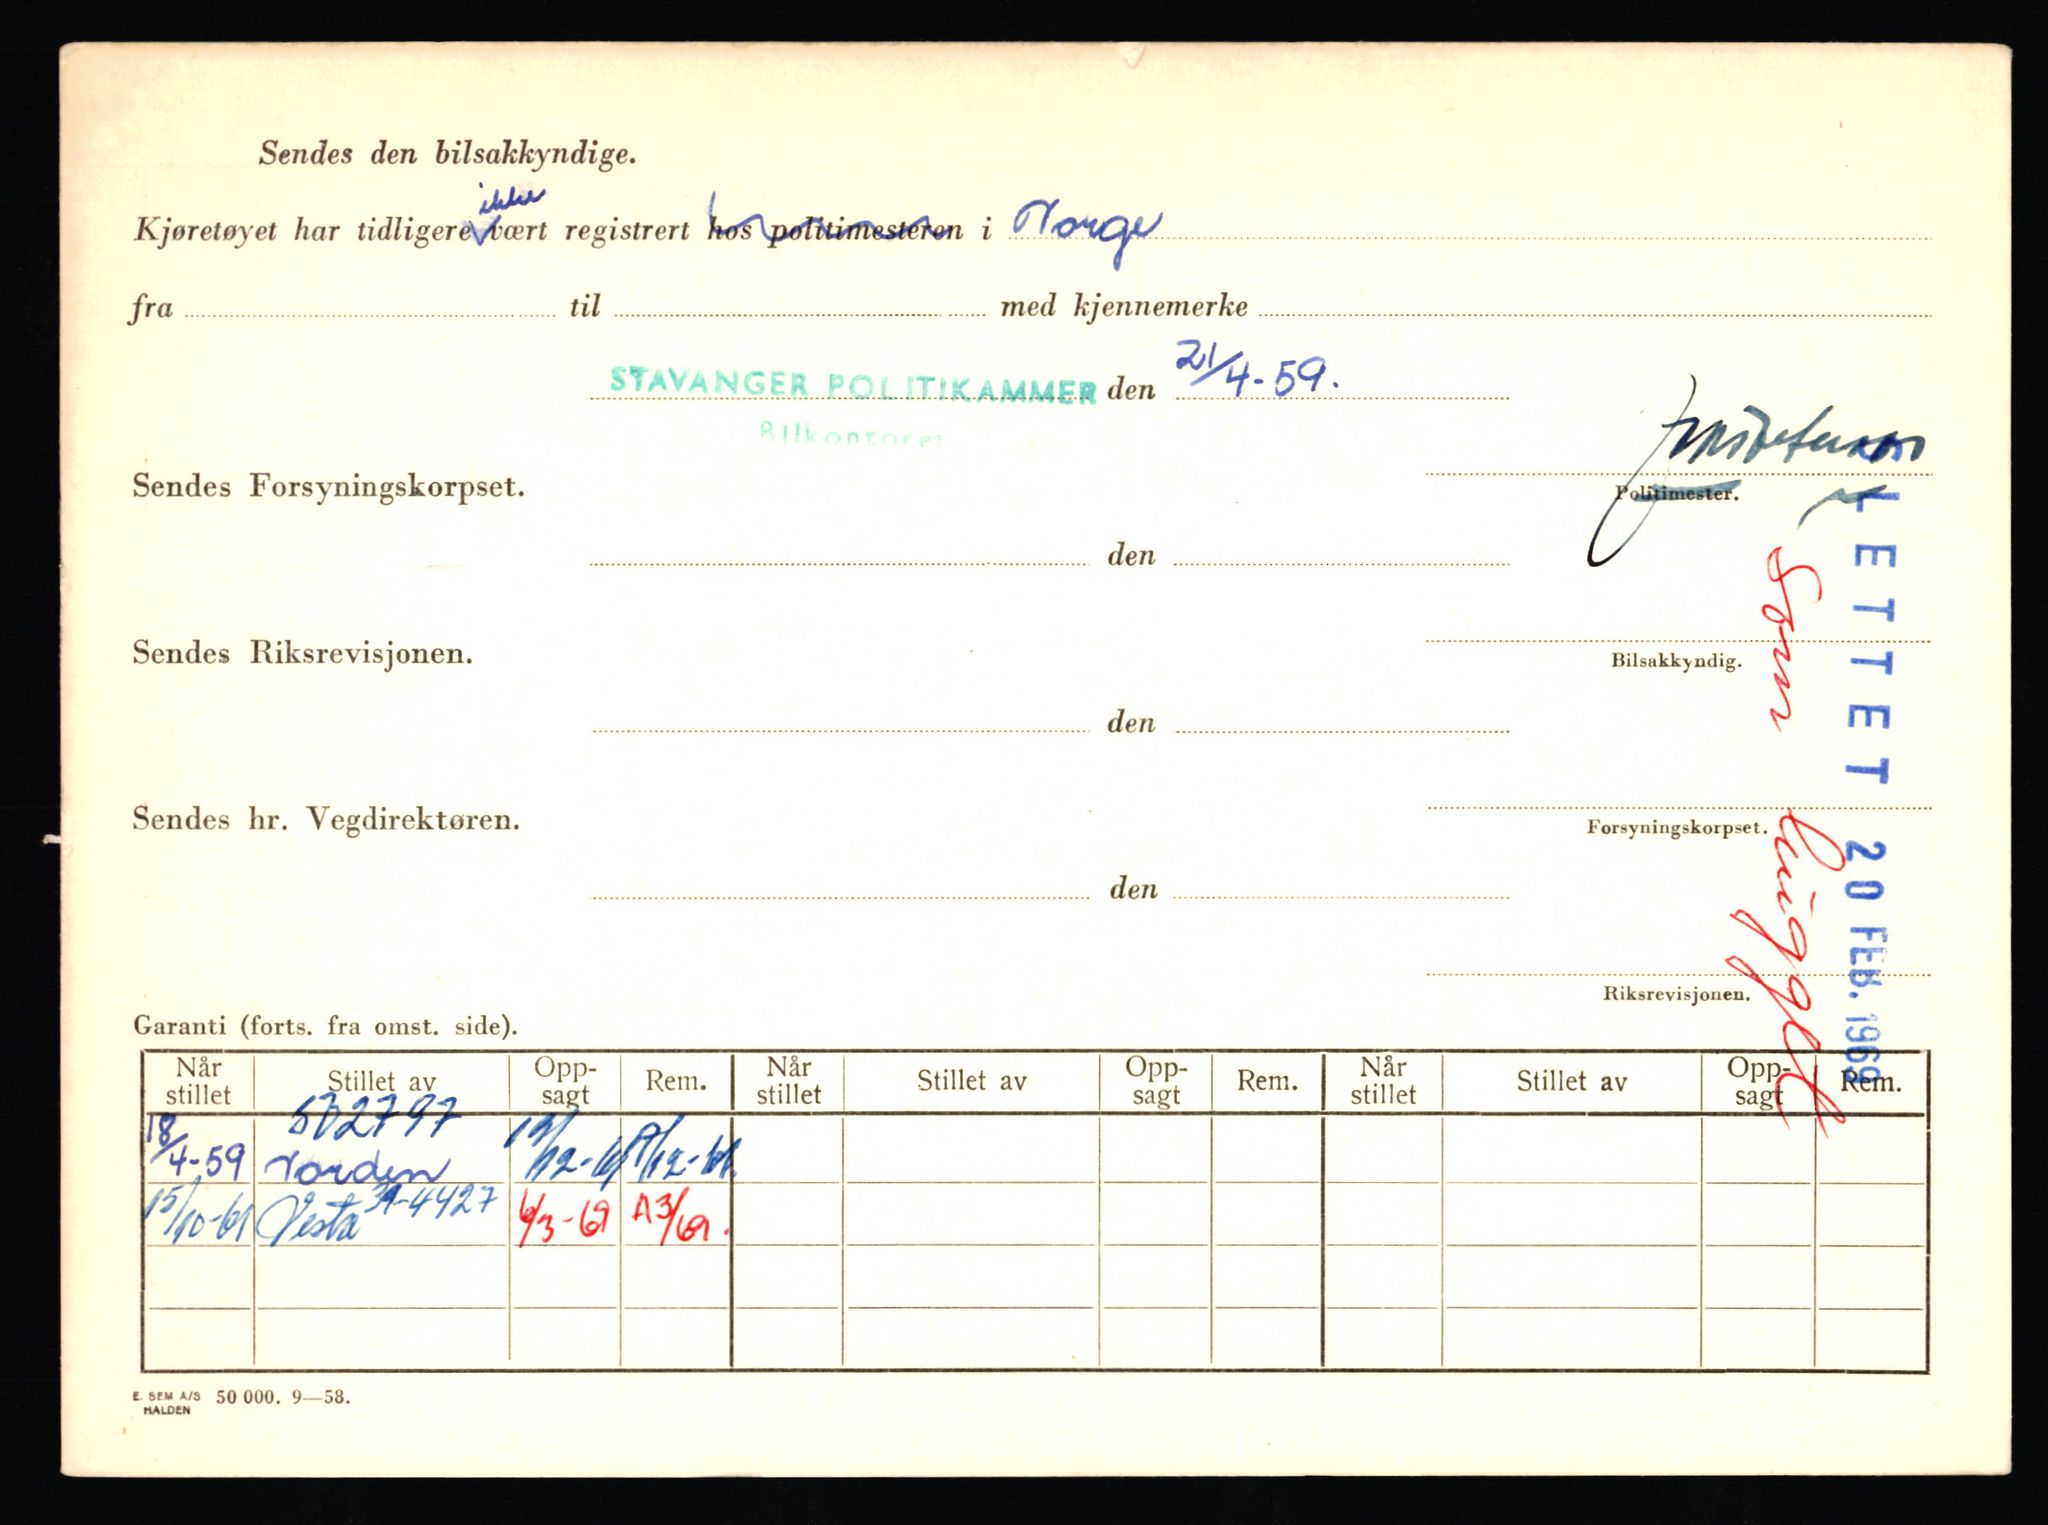 Sendes den bilsakkyndige.
Kjøretøyet har tidligere ikke vært registrert hos politimesteren i Norge
fra til med kjennemerke
STAVANGER POLITIKAMMER den 21/4-59.
Bilkontoret
Sendes Forsyningskorpset.
Politimester.
den
Sendes Riksrevisjonen.
Bilsakkyndig.
den
Sendes hr. Vegdirektøren.
Forsyningskorpset.
den
Riksrevisjonen.
SLETTET 20 FEB. 1969
Som hugget
Garanti (forts. fra omst. side).
Når stillet Stillet av Opp- sagt Rem. Når stillet Stillet av Opp- sagt Rem. Når stillet Stillet av Opp- sagt Rem.
502797
18/4-59 Norden 19/12-61 9/12-61.
15/10-61 Vesta 39-4427 6/3-69 A3/69.
E. SEM A/S HALDEN 50 000. 9—58.